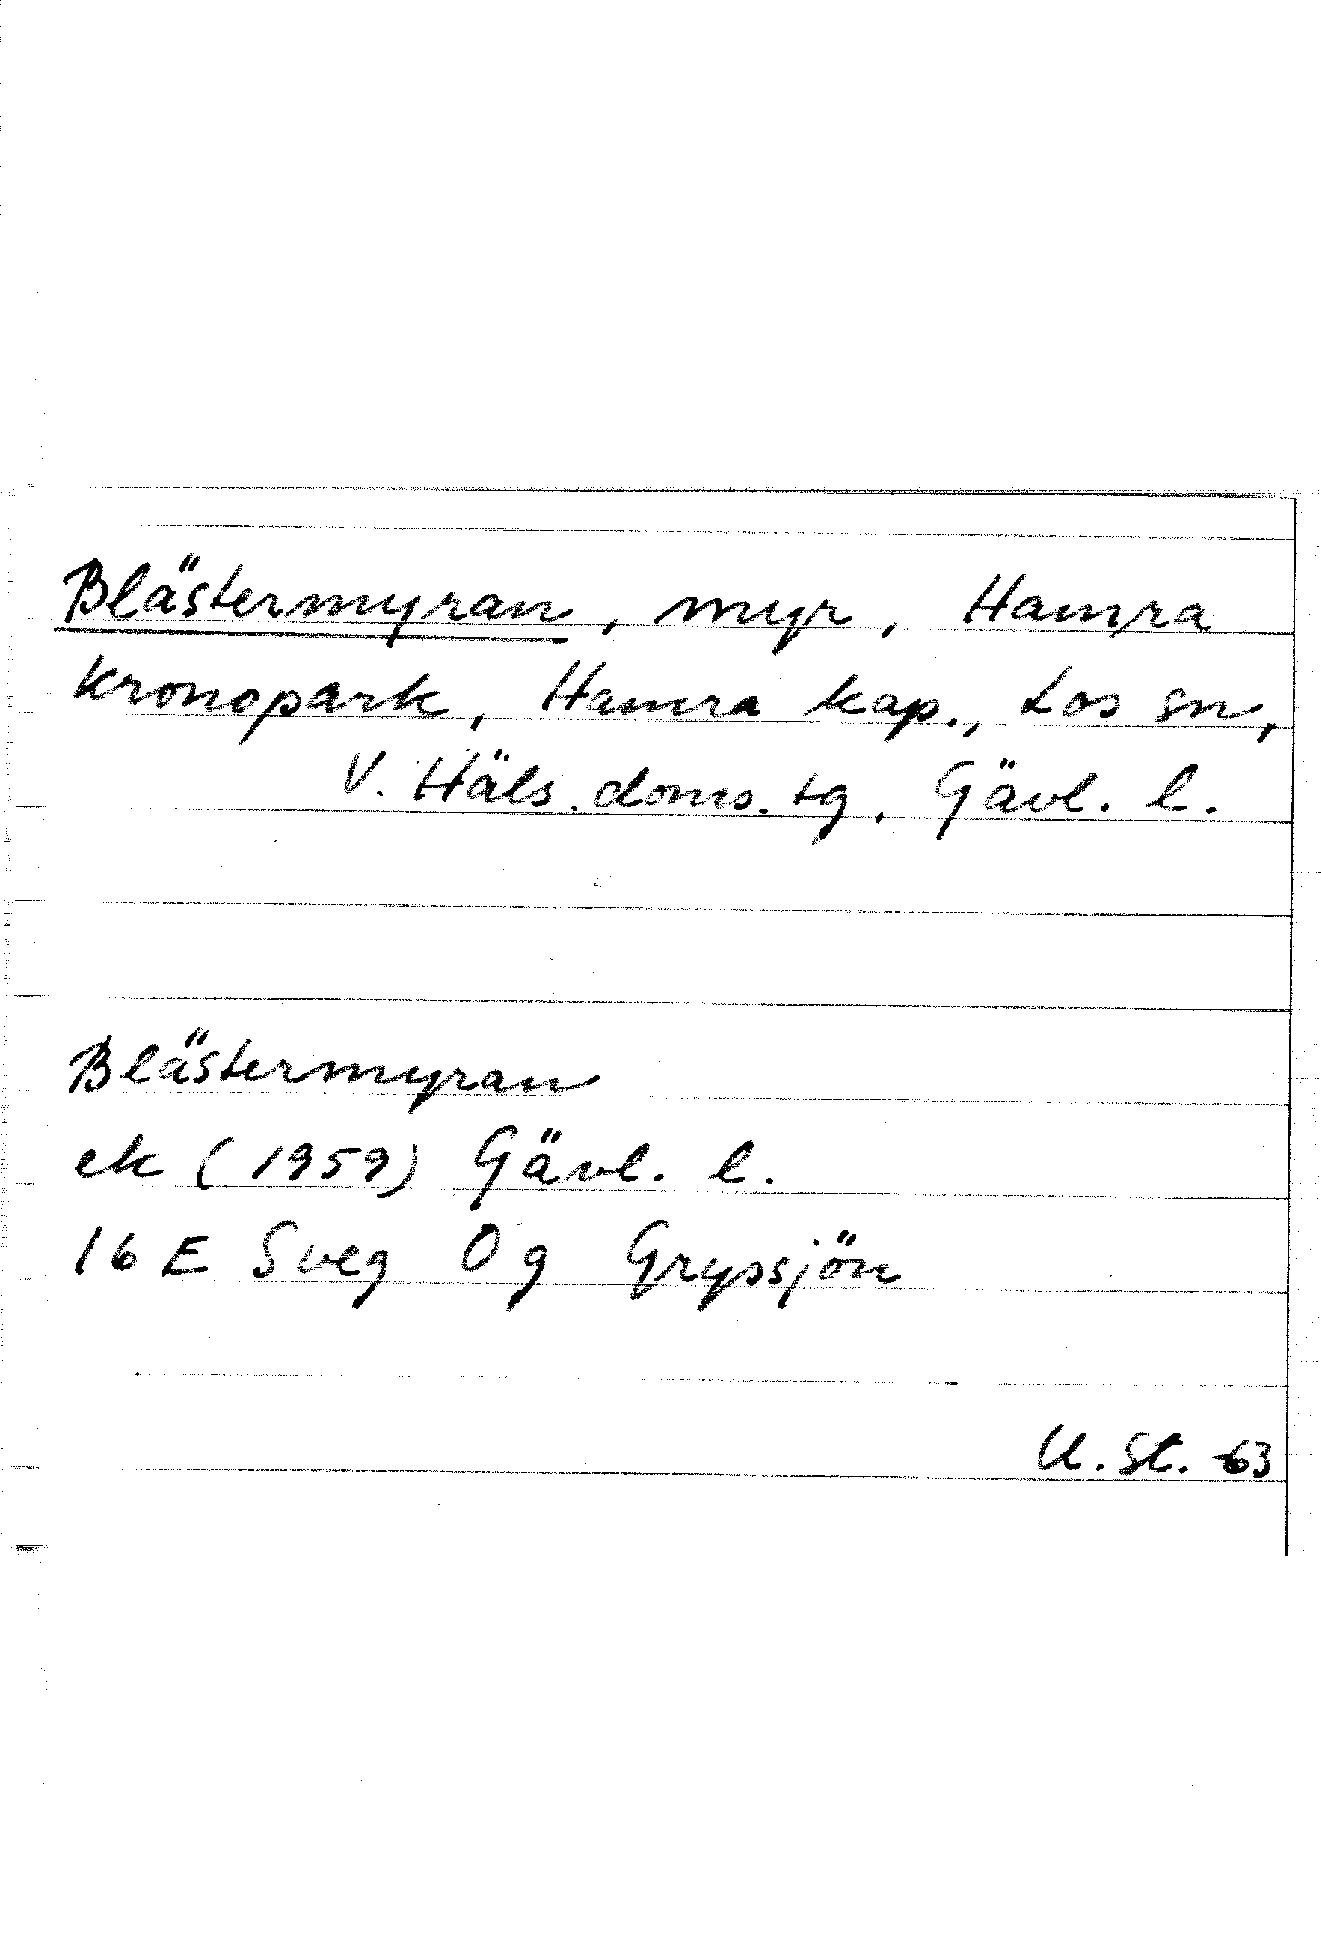 Blästermyran, myr, Hamra
kronopark, Hamra kap., Los sn,
V. Häls. doms. tg, Gävl. l.
Blästermyran
ek (1959) Gävl. l.
16 E Sveg 0 g Gryssjön
U. St. -63